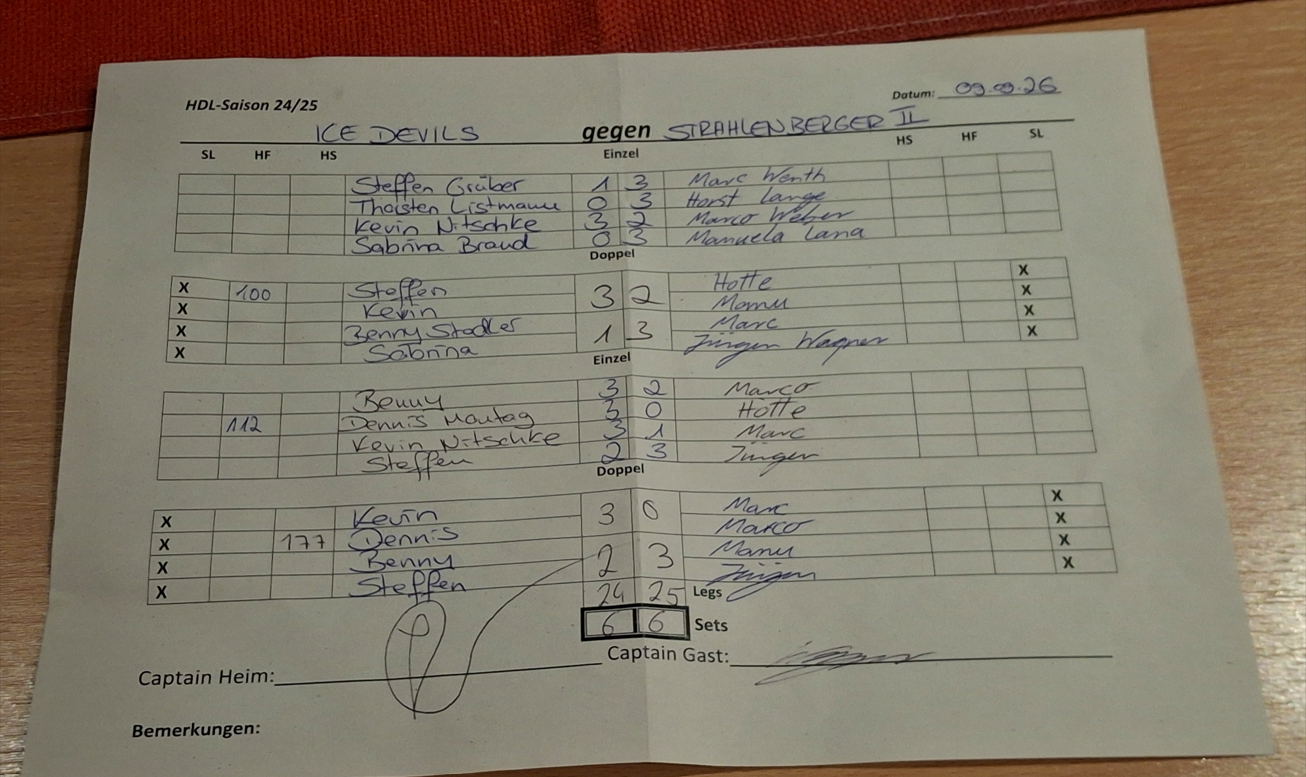 HDL-Saison 24/25 Datum: 09.09.26
ICE DEVILS gegen STRAHLENBERGER II
SL HF HS Einzel HS HF SL
Steffen Gruber 1 3 Marc Werth
Thorsten Listmann 0 3 Horst Lange
Kevin Nitschke 3 2 Marco Weber
Sabrina Braud 0 3 Manuela Lana
Doppel
X 100 Steffen 3 2 Hotte X
X Kevin Manu X
X Benny Stadler 1 3 Marc X
X Sabrina Jürgen Wagner X
Einzel
Benny 3 2 Marco
112 Dennis Montag 3 0 Hotte
Kevin Nitschke 3 1 Marc
Steffen 2 3 Jürgen
Doppel
X Kevin 3 0 Marc X
X 177 Dennis Marco X
X Benny 2 3 Manu X
X Steffen Jürgen X
24 25 Legs
6 6 Sets
Captain Heim: Captain Gast:
Bemerkungen: